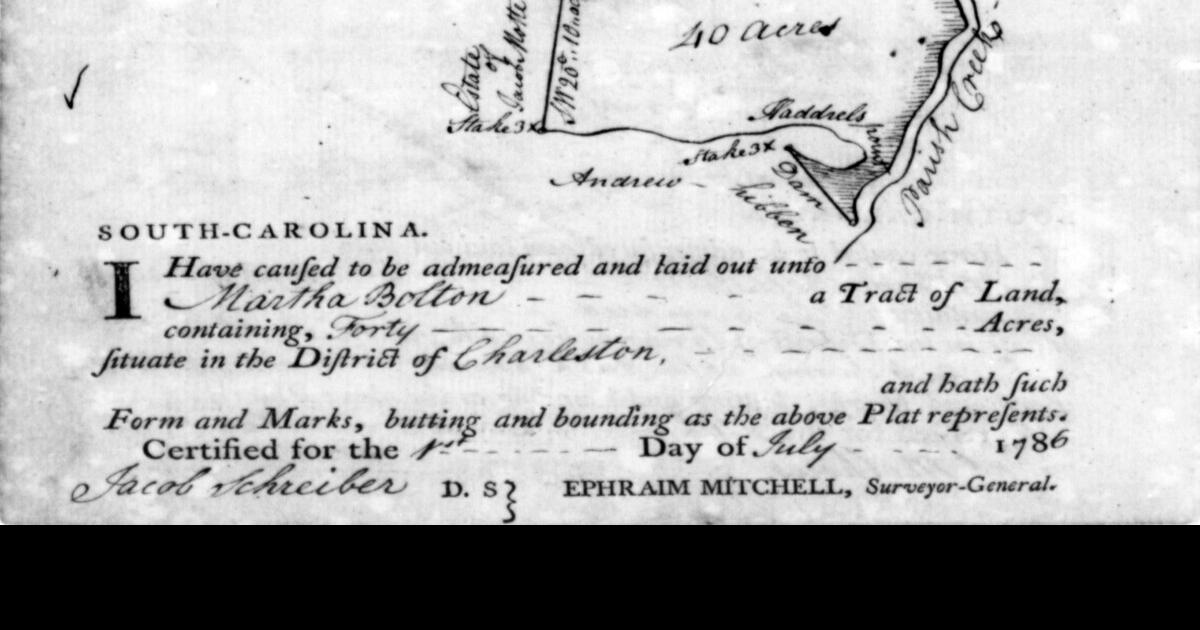 40 Acres
Estate
of
Jacob Motte
SW 20° 10
Stake 3x
Haddrels
point
Stake 3x
Dam
Andrew -
hibben
Parish Creek
SOUTH-CAROLINA.
I Have cauſed to be admeaſured and laid out unto
Martha Bolton a Tract of Land,
containing, Forty Acres,
ſituate in the Diſtrict of Charleston,
and hath ſuch
Form and Marks, butting and bounding as the above Plat repreſents.
Certified for the 1st Day of July 1786
Jacob Schreiber D. S} EPHRAIM MITCHELL, Surveyor-General.